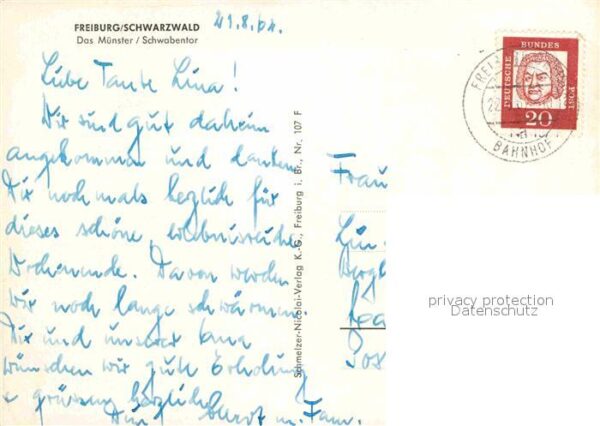 FREIBURG/SCHWARZWALD
Das Münster / Schwabentor
21.8.64.
Liebe Tante Lina!
Wir sind gut daheim
angekommen und danken
Dir nochmals herzlich für
dieses schöne, erlebnisreiche
Wochenende. Davon werden
wir noch lange schwärmen.
Dir und unserer
wünschen wir gute Erholung
& grüssen herzlich
Dein m. Fam.
Schmelzer-Nicolai-Verlag K.-G., Freiburg i. Br., Nr. 107 F
DEUTSCHE BUNDESPOST
20
FREIB
22.
BAHNHOF
Frau
Lin
privacy protection
Datenschutz